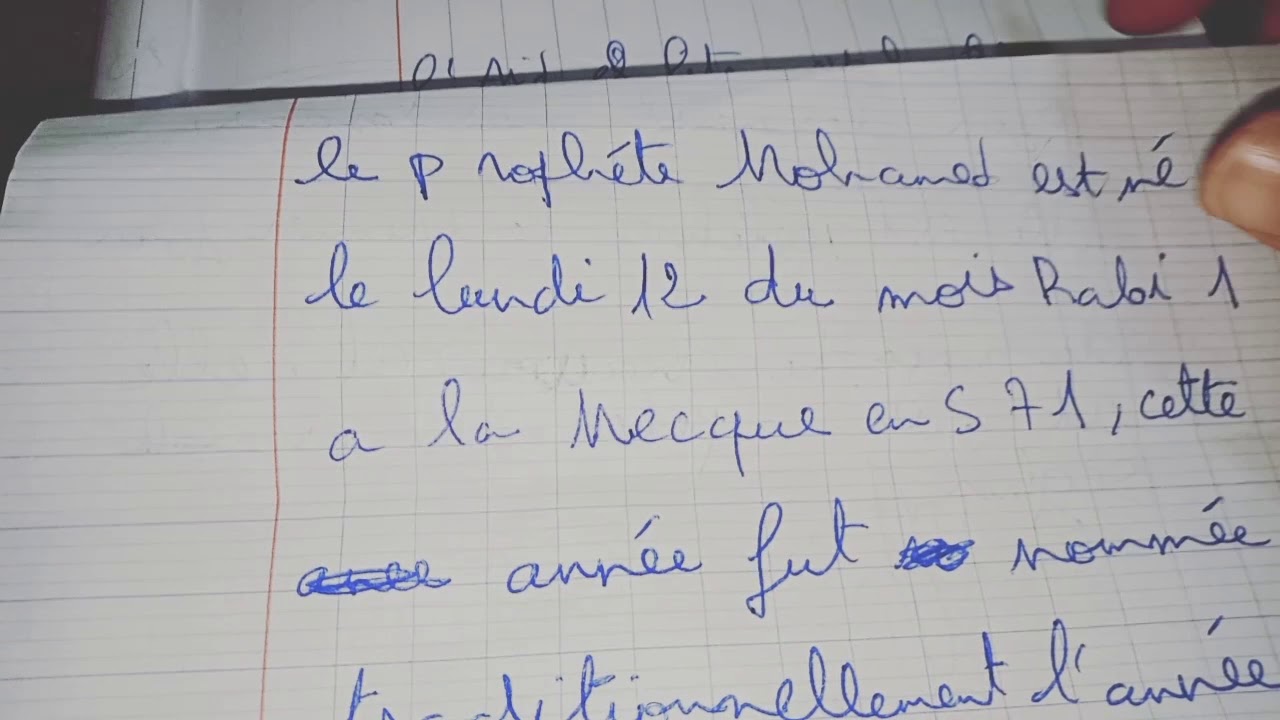 le prophéte Mohamed est né
le lundi 12 du mois Rabi 1
a la Mecque en 571, cette
année fut nommée
traditionnellement l'année